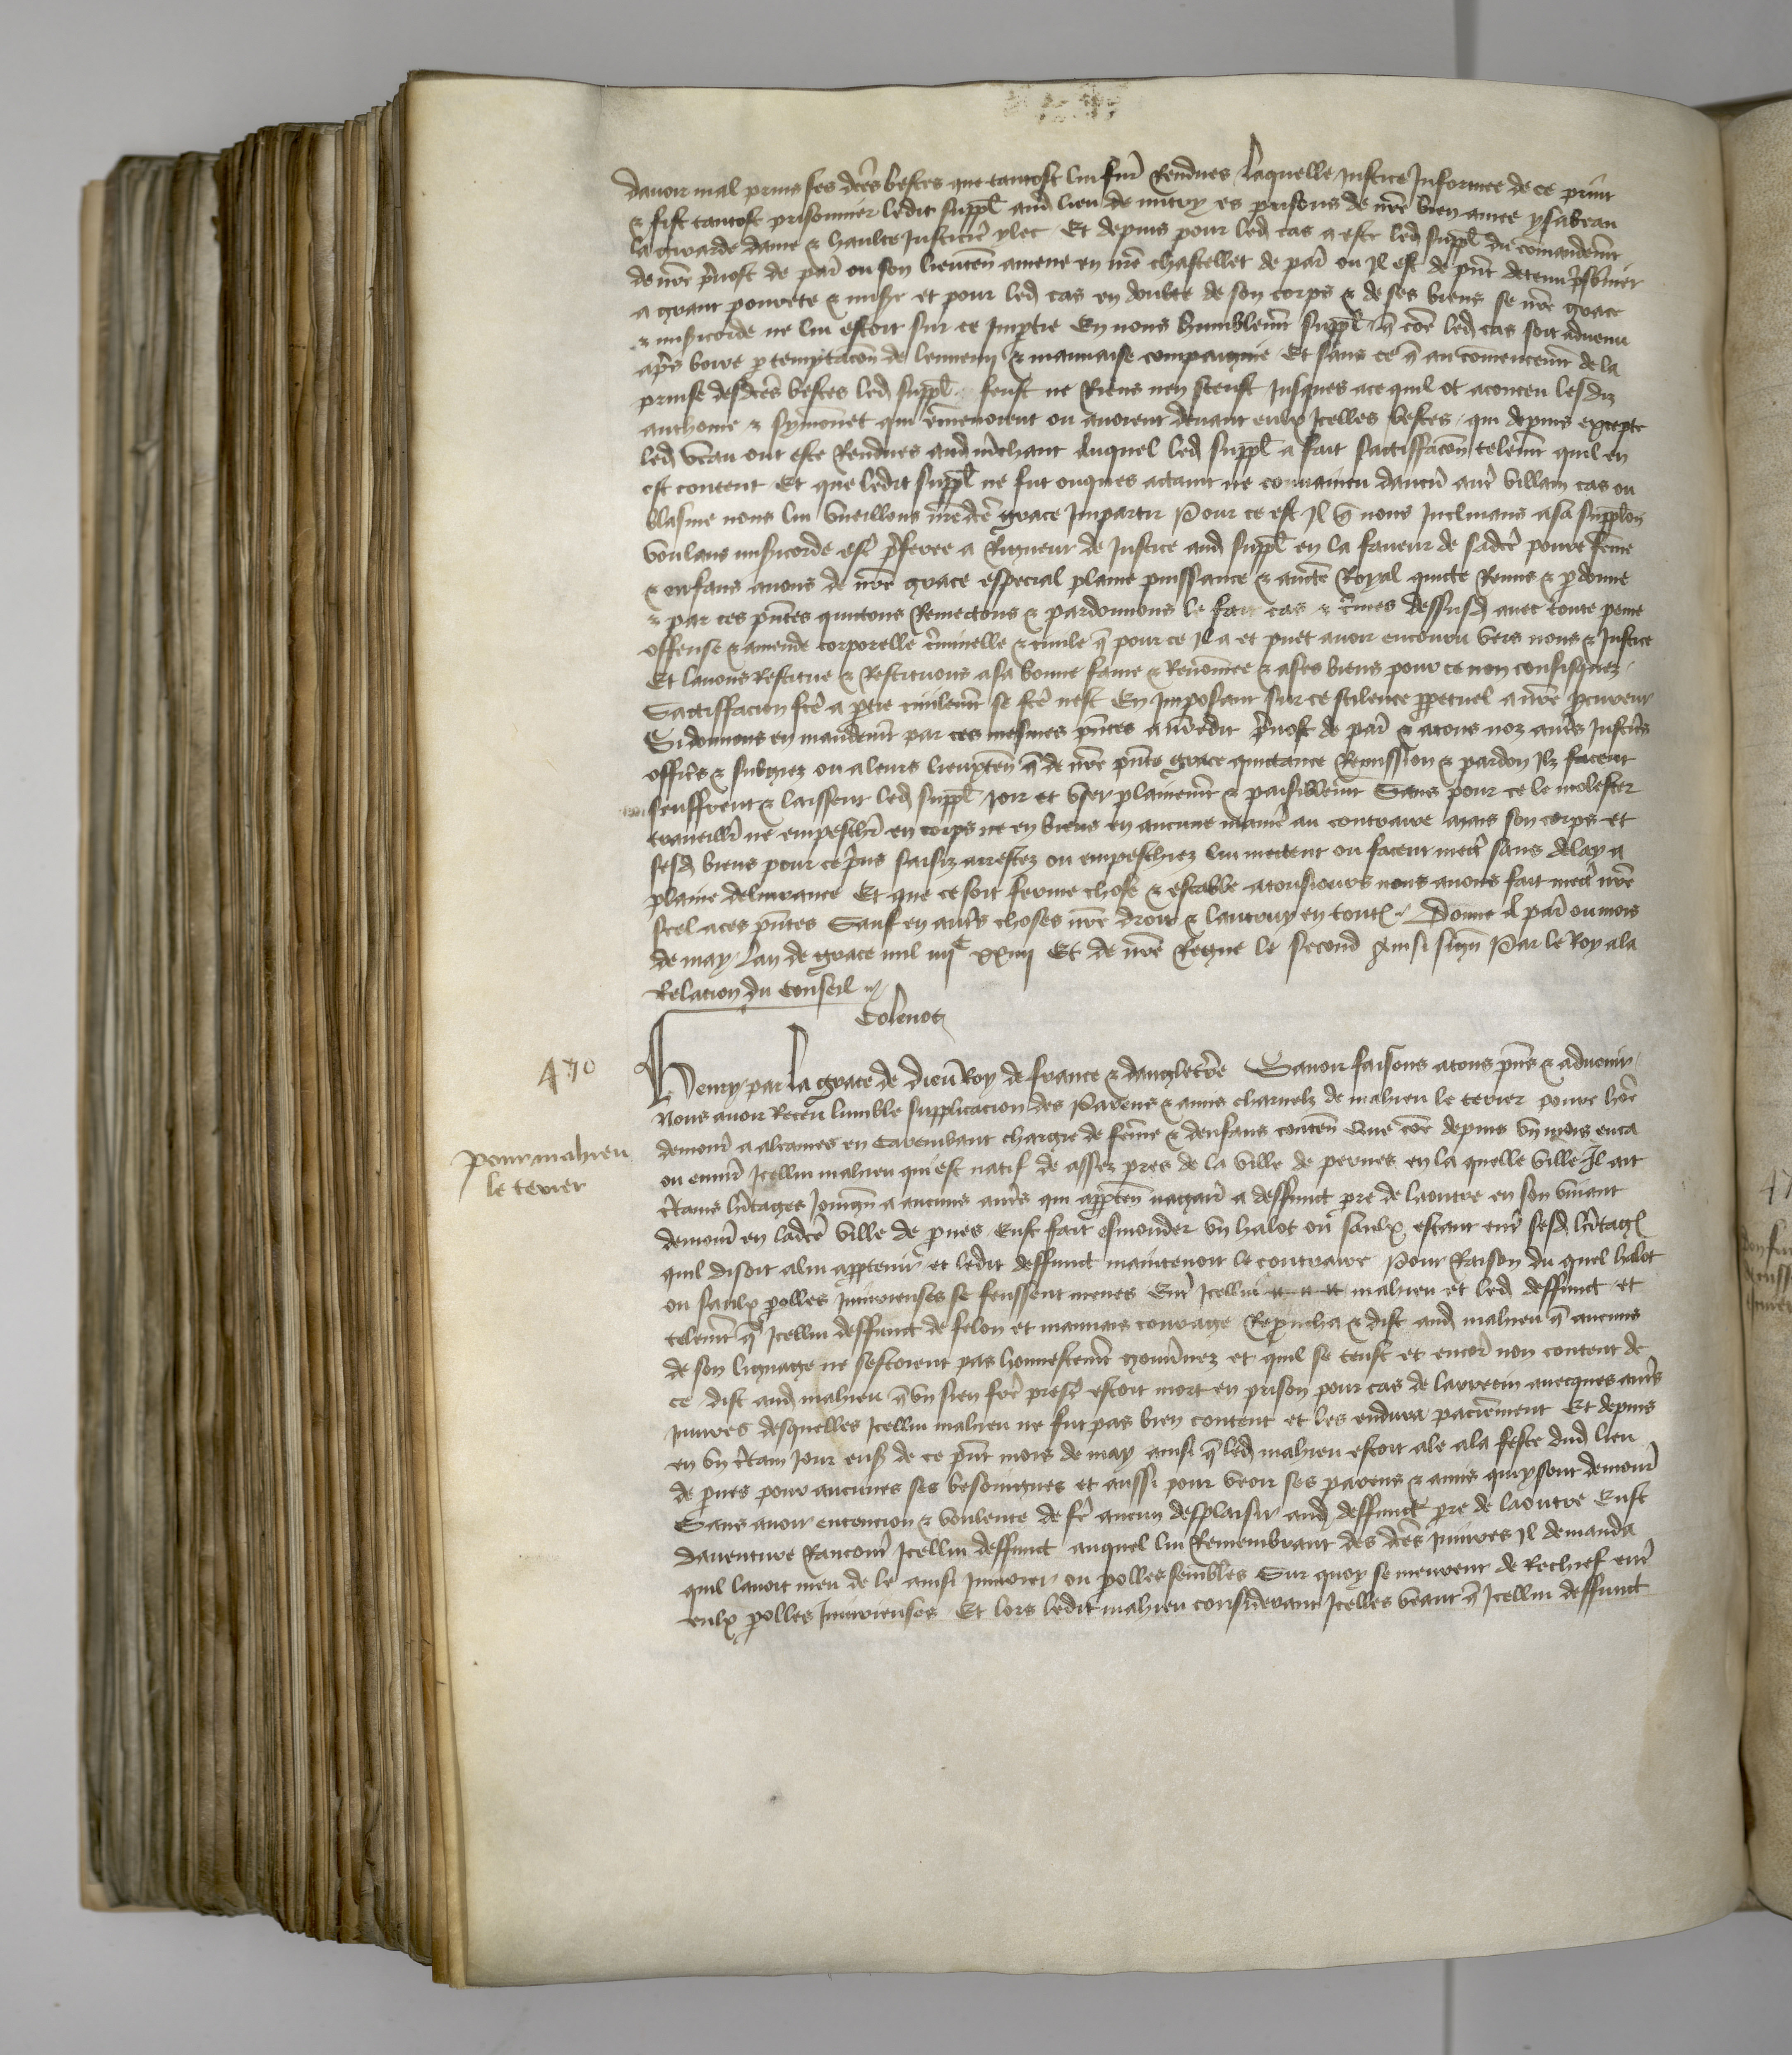 davoir mal prins ses dc̃es bestes que tantost lui furẽ Rendues Laquelle Justice Informee de ce print
& fist tantost prisonnier ledit suppl̃ aud̃ lieu de mitry es prisons de nr̃e bien amee ysabeau
la gwarde dame & haulte Justicier̃ ylec Et depuis pour led̃ cas a este led̃ suppl̃ du cõmandemt̃
de nr̃e p̃uost de par̃ ou son lieuten̄ amene en nr̃e chastellet de par̃ ou Il est de pñt detenu p̃sõnier
a grant pourete & mis̃e et pour led̃ cas en doubte de son corps & de ses biens se nr̃e grace
& mis̃icorde ne lui estoit sur ce Imp̃tie En nous humblemt̃ suppl̃ q̃ cõe led̃ cas soit aduenu
ap̃s boire p̱ temptacõn de lennemj & mauuaise compaignie Et sans ce q̃ au cõmencemt̃ de la
prinse desdc̃es bestes led̃ suppl̃ feust ne Riens nen sceust Jusques ace quil ot aconceu lesdiz
anthoine & symonnet qui em̃menoient ou auoient deuant eulx Icelles bestes qui depuis excepte
led̃ veau ont este Rendues aud̃ m̃chant duquel led̃ suppl̃ a fait sattisfacõn telemt̃ quil en
est content Et que ledit suppl̃ ne fut onques actaint ne conuaincu daucũ autr̃ villain cas ou
blasme nous lui vueillons nr̃edc̃e grace Impartir Pour ce est Il q̃ nous Inclinans a sa supplõn
voulans mis̃icorde estr̃ p̃feree a Rigueur de Justice aud̃ suppl̃ en la faueur de sadc̃e poure fẽme
& enfans auons de nr̃e grace especial plaine puissance & auctẽ Royal quicte Remis & p̱donne
& par ces pñtes quictons Remectons & pardonnons le fait cas & c̃mes dessusd̃ auec toute peine
offense & amende corporelle c̃iminelle & ciuile q̃ pour ce Il a et puet auoir encouru vers nous & Justice
Et lauons Restitue & Restituons a sa bonne fame & Renõmee & ases biens pour ce non confisquez
Sattisfacion fc̃e a p̱tie ciuilemt̃ se fc̃e nest En Imposant sur ce scilence pp̱etuel a nr̃e p̱cureur
Si donnons en mandemt̃ par ces mesmes pñtes a nr̃edit p̃uost de par̃ & atous noz autr̃s Justic̃s
offic̃s & subgiez ou aleurs lieuxten̄ q̃ de nr̃e pñte grace quictance Remission & pardon Ilz facent
seuffrent & laissent led̃ suppl̃ Joir et vser plainemt̃ & paisiblemt̃ Sans pour ce le molester
trauaillr̃ ne empeschr̃ en corps ne en biens en aucune manier̃ au contraire mais son corps et
sesd̃ biens pour ce p̃ns saisiz arrestez ou empeschiez lui mectent ou facent mectr̃ sans delay a
plaine deliurance Et que ce soit ferme chose & estable atousiours nous auons fait mectr̃ nr̃e
seel aces pñtes Sauf en autr̃s choses nr̃e droit & lautruy en toutes Donne A par̃ ou mois
de may Lan de grace mil iiijᶜ xxiiij Et de nr̃e Regne le second Ainsi sign̄ Par le Roy ala
Relation du Conseil
Colenot
470
Henry par la grace de dieu Roy de france & dangletr̃e Sauoir faisons atous pñs & aduenir
Nous auoir Receu lumble supplicacion des Parens & amis charnelz de mahieu le terier poure hõe
pour mahieu
le terier
demour̃ a alcames en Carembaut chargie de fẽme & denfans conten̄ Que cõe depuis vn mois enca
ou enuir̃ Icellui mahieu qui est natif de assez pres de la ville de pernes en la quelle ville Il ait
c̃tains h̃itages Joingn̄ a aucuns autr̃s qui app̱ten̄ nagair̃ a deffunct pr̃e de laoutre en son viuant
demour̃ en ladc̃e ville de p̱nes Eust fait esmonder vn halot ou saulx estant entr̃ sesd̃ h̃itages
quil disoit alui app̱tenir et ledit deffunct maintenoit le contraire Pour Raison du quel halot
ou saulx p̱olles Iniurieuses se feussent meues Entr̃ Icellui mahieu et led̃ deffunct et
telemt̃ q̃ Icellui deffunct de felon et mauuais courage Reproucha & dist aud̃ mahieu q̃ aucuns
de son lignage ne sestoient pas honnestemt̃ gouũnez et quil se teust et encor̃ non content de
ce dist aud̃ mahieu q̃ vn sien frẽ prestr̃ estoit mort en prison pour cas de larrecin auecques autr̃s
iniures desquelles Icellui mahieu ne fut pas bien content et les endura paciẽment Et depuis
en vn c̃tain Jour ens̃ de ce pñt mois de may ainsi q̃ led̃ mahieu estoit ale ala feste dud̃ lieu
de p̱nes pour aucunes ses besoingnes et aussi pour veoir ses parens & amis qui y sont demour̃
Sans auoir entencion & voulente de fr̃e aucun desplaisir aud̃ deffunct pr̃e de laoutre Eust
dauenture Rancontr̃ Icellui deffunct auquel lui Remembrant des dc̃es Iniures Il demanda
quil lauoit meu de le ainsi Iniurier ou p̱olles sembles Sur quoy se meurent de Rechief entr̃
eulx p̱olles Iniurieuses Et lors ledit mahieu considerant Icelles veant q̃ Icellui deffunct